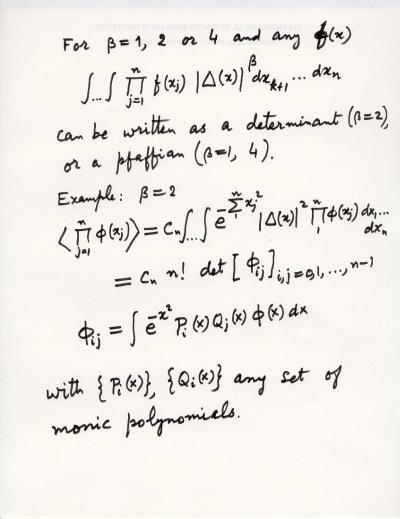 For β = 1, 2 or 4 and any f(x)
∫...∫ ∏_{j=1}^{n} f(x_j) |Δ(x)|^β dx_{k+1} ... dx_n
can be written as a determinant (β=2),
or a pfaffian (β=1, 4).
Example: β = 2
⟨∏_{j=1}^{n} φ(x_j)⟩ = C_n ∫...∫ e^{-∑_1^n x_j^2} |Δ(x)|^2 ∏_1^n φ(x_j) dx_1... dx_n
= C_n n! det [φ_{ij}]_{i,j=0,1,...,n-1}
φ_{ij} = ∫ e^{-x^2} P_i(x) Q_j(x) φ(x) dx
with {P_i(x)}, {Q_i(x)} any set of
monic polynomials.